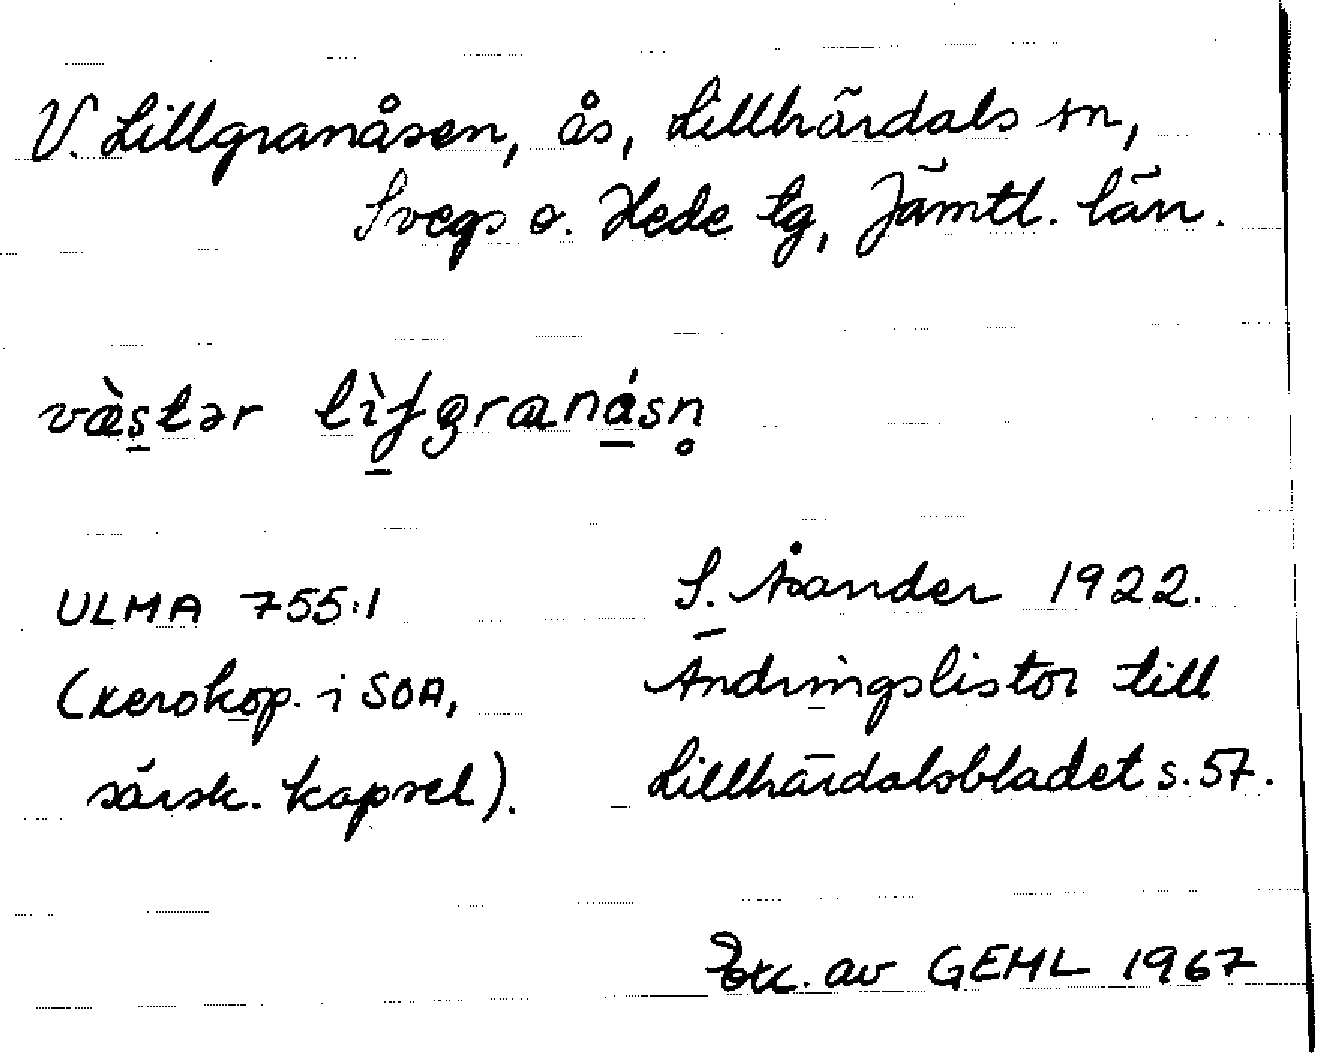 V. Lillgranåsen, ås, Lillhärdals sn,
Svegs o. Hede tg, Jämtl. län.
væ̀stər lìʃgranásn̥
ULMA 755:1
(xerokop. i SOA,
särsk. kapsel).
S. Åsander 1922.
Ändringslistor till
Lillhärdalsbladet s. 57.
Exc. av GEHL 1967